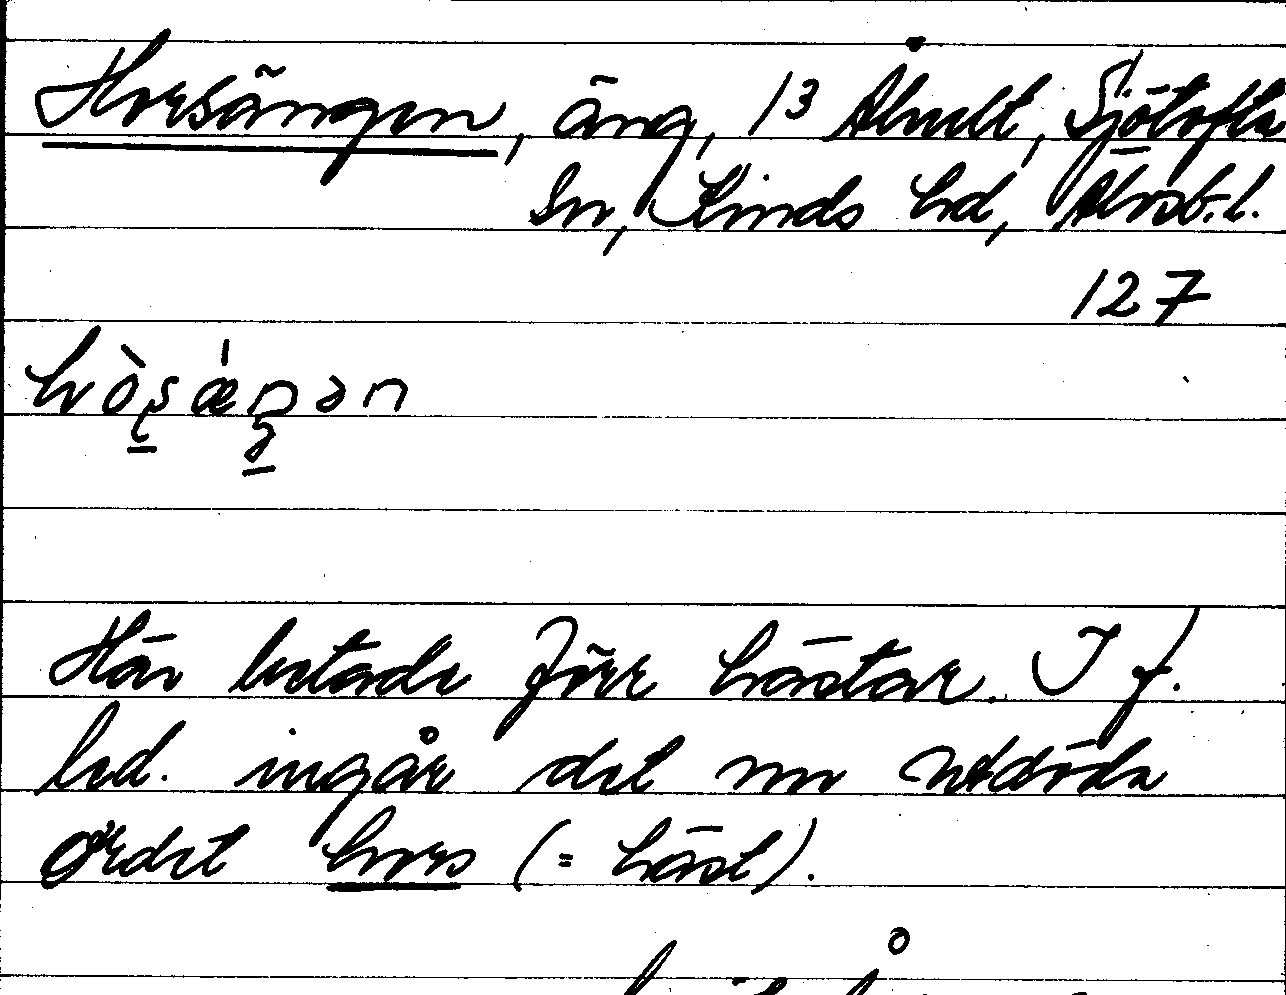 Horsängen, äng, 13 Älvult, Sjötofta
Sn, Kinds hd, Älvsb. l.
127
hò̱sǽŋən
Här betade förr hästar. I f.
led. ingår det nu utdöda
ordet hors (= häst).